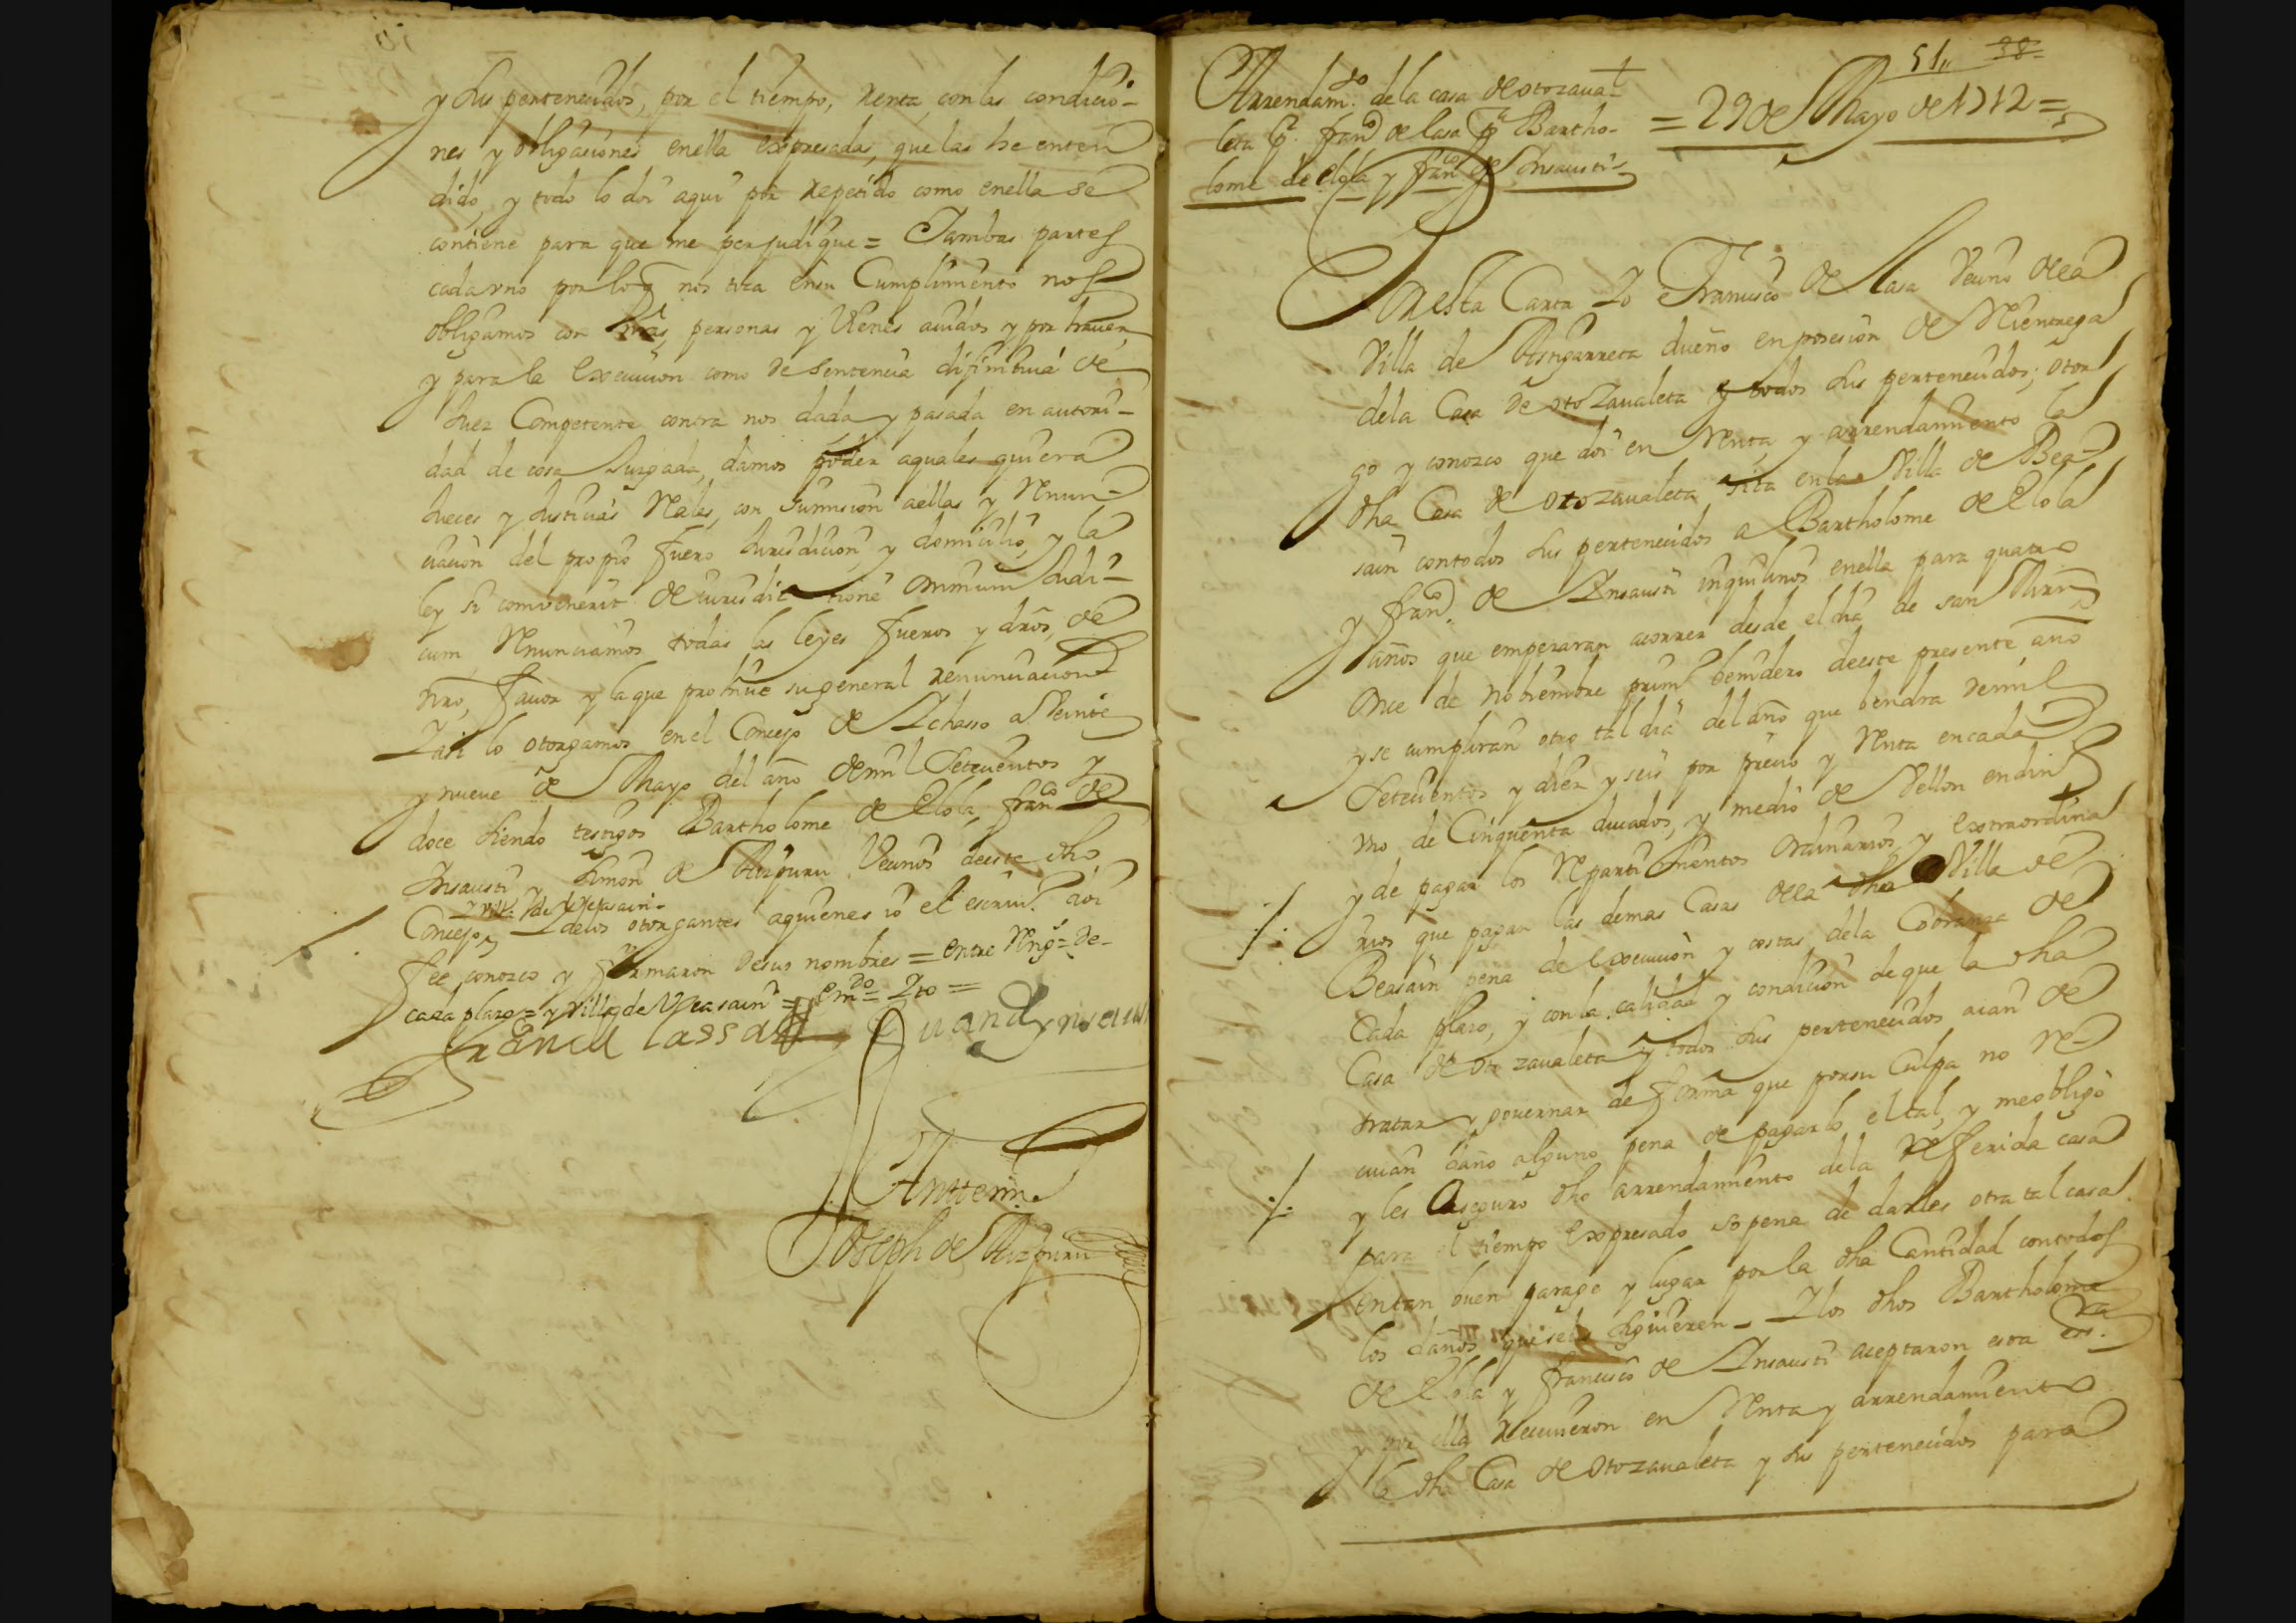 y sus pertenecidos, por el tiempo, renta, con las condicio-
nes y obligaciones en ella expresadas, que las he enten
dido, y todo lo doi aqui por repetido como en ella se
contiene para que me perjudique = Iambas partes
cada vno por lo q nos toca en su Cumplimiento nos
obligamos con nras personas y Vienes auidos y por hauer,
y para la execucion como de sentencia difinitiua de
Juez Competente contra nos dada y pasada en autori-
dad de cosa Jusgada, damos poder aquales quiera
Jueces y Justicias Rales, con sumision aellas y Renun-
ciacion del propio fuero Jurisdicion y domicilio, y la
ley si convenerit de iurisdictione omnium Judi-
cum, Renunciamos todas las leyes fueros y dros, de
nro, fauor y la que prohiue su general renunciacion
Iasi lo otorgamos en el Concejo de Ichasso a Veinte
y nueue de Mayo del año de mil Setecientos y
doce siendo testigos Bartholome de Elola, franco de
Insausti y Simon de Aizpuru Vecinos deeste dho
y Villa de Veasain
Concejo, I de los otorgantes aquienes io el escriu.o doi
fee conozco y firmaron de sus nombres = entre Rengs = de-
cada plazo = y villa de Veasain = em.do = Ito =
franco lassa Juan de ynsausti
Antemi
Joseph de Aizpuru
51,, 38
Arrendam.to dela casa de otozaua-
leta P.r fran.co de lasa p.a Bartho-
lome de elola y fran.co de Insausti
= 29 de Mayo de 1712 =
En esta Carta Io Francisco de Lasa Vecino de la
Villa de Astigarreta dueño en posesion de Rientrega
dela Casa de otozaualeta y todos sus pertenecidos; otor
go y conozco que doi en Renta, y arrendamiento la
dha Casa de otozaualeta sita en la Villa de Bea-
sain con todos sus pertenecidos a Bartholome de Elola
y fran.co de Insausti inquilinos en ella para quatro
años que empezaran acorrer desde el dia de san Martin
once de nobiembre prim.o benidero deeste presente año
y se cumpliran otro tal dia del año que bendra de mil
Setecientos y diez y seis por precio y Renta en cada
vno de Cinquenta ducados, y medio de Vellon en din.o
y de pagar los Repartimientos ordinarios, y extraordina
rios que pagan las demas Casas dela dha Villa de
Beasain pena de execucion y costas dela Cobranza de
Cada plazo, y con la calidad y condicion de que la dha
Casa de otozaualeta y todos sus pertenecidos aian de
tratar y gouernar de forma que por su Culpa no Re-
ciuan daño alguno pena de pagarlo el tal, y me obligo
y les Aseguro dho arrendamiento dela Referida casa
para el tiempo expresado so pena de darles otra tal casa
en tan buen parage y lugar por la dha Cantidad con todos
los daños que se les siguieren - I los dhos Bartholome
de Elola y francisco de Insausti aceptaron esta Ess.ra
y por ella Reciuieron en Renta y arrendamiento
la dha Casa de otozaualeta y sus pertenecidos para